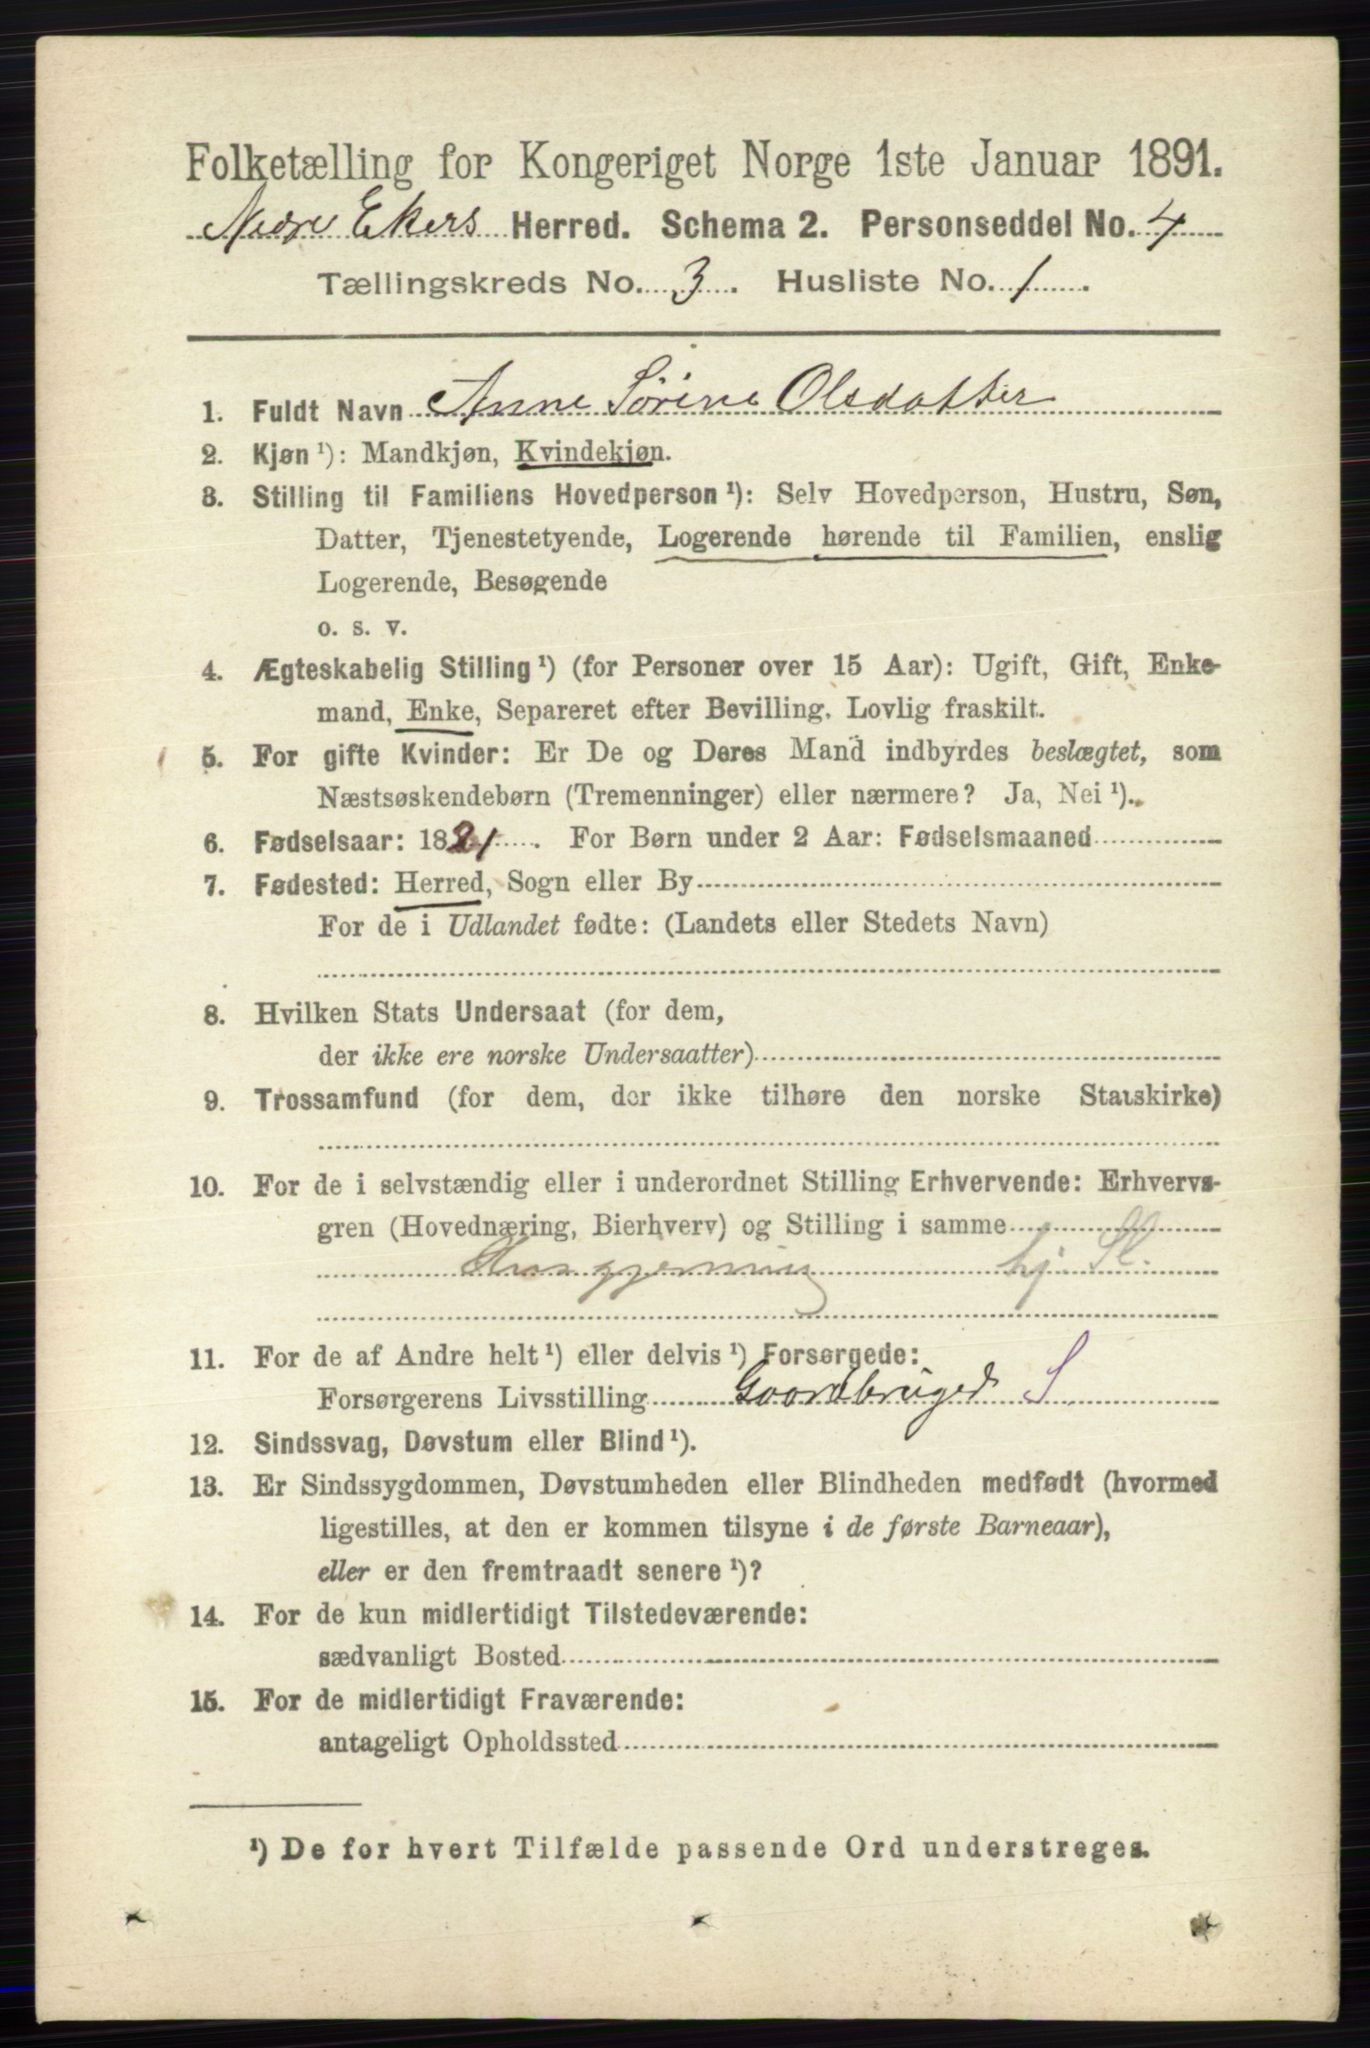 Folketælling for Kongeriget Norge 1ste Januar 1891.
Nedre Ekers Herred. Schema 2. Personseddel No. 4
Tællingskreds No. 3. Husliste No. 1.
1. Fuldt Navn Anne Sørine Olsdatter
2. Kjøn ¹): Mandkjøn, Kvindekjøn.
3. Stilling til Familiens Hovedperson ¹): Selv Hovedperson, Hustru, Søn,
Datter, Tjenestetyende, Logerende hørende til Familien, enslig
Logerende, Besøgende
o. s. v.
4. Ægteskabelig Stilling ¹) (for Personer over 15 Aar): Ugift, Gift, Enke-
mand, Enke, Separeret efter Bevilling. Lovlig fraskilt.
5. For gifte Kvinder: Er De og Deres Mand indbyrdes beslægtet, som
Næstsøskendebørn (Tremenninger) eller nærmere? Ja, Nei ¹).
6. Fødselsaar: 1821. For Børn under 2 Aar: Fødselsmaaned
7. Fødested: Herred, Sogn eller By
For de i Udlandet fødte: (Landets eller Stedets Navn)
8. Hvilken Stats Undersaat (for dem,
der ikke ere norske Undersaatter)
9. Trossamfund (for dem, der ikke tilhøre den norske Statskirke)
10. For de i selvstændig eller i underordnet Stilling Erhvervende: Erhvervs-
gren (Hovednæring, Bierhverv) og Stilling i samme
Husgjerning hj. Sl.
11. For de af Andre helt ¹) eller delvis ¹) Forsørgede:
Forsørgerens Livsstilling Gaardbruger S
12. Sindssvag, Døvstum eller Blind ¹).
13. Er Sindssygdommen, Døvstumheden eller Blindheden medfødt (hvormed
ligestilles, at den er kommen tilsyne i de første Barneaar),
eller er den fremtraadt senere ¹)?
14. For de kun midlertidigt Tilstedeværende:
sædvanligt Bosted
15. For de midlertidigt Fraværende:
antageligt Opholdssted
¹) De for hvert Tilfælde passende Ord understreges.